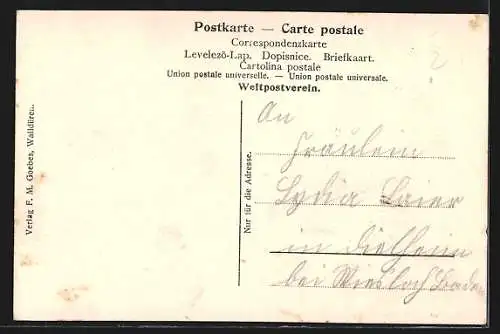 Postkarte — Carte postale
Correspondenzkarte
Levelező-Lap. Dopisnice. Briefkaart.
Cartolina postale
Union postale universelle. — Union postale universale.
Weltpostverein.
2
Verlag F. M. Goebes, Walldüren.
Nur für die Adresse.
An
Fräulein
Lydia Laier
in Dielheim
bei Wiesloch Baden